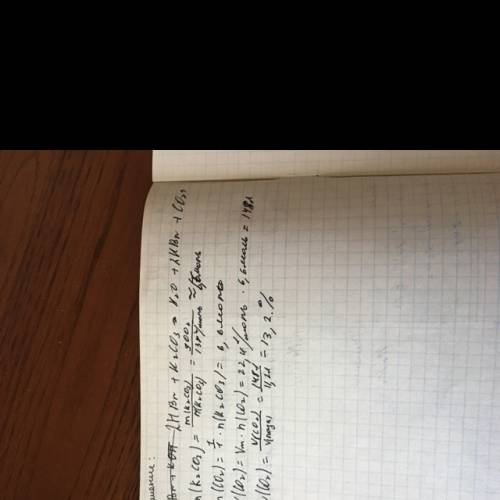 шение:
2HBr + K₂CO₃ → H₂O + 2KBr + CO₂↑
n(K₂CO₃) = m(K₂CO₃) / M(K₂CO₃) = 900г / 138г/моль ≈ 6,5моль
n(CO₂) = 1/1 · n(K₂CO₃) = 6,6моль
V(CO₂) = Vm · n(CO₂) = 22,4л/моль · 6,6моль = 148л
(CO₂) = V(CO₂) / V(возд) = 148л / 11,2л = 13,2%